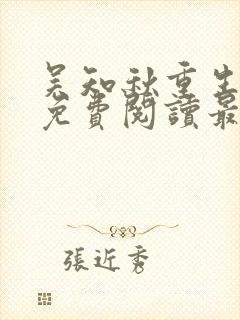 吴知秋重生
免費閱讀最
張近秀